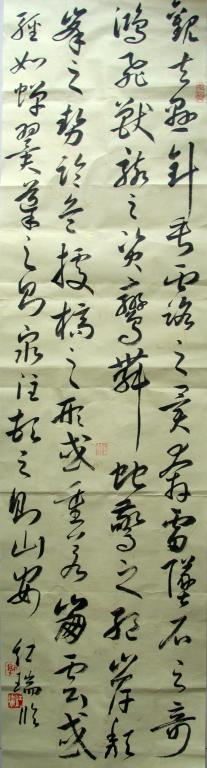 觀夫懸針垂露之異奔雷墜石之奇
鴻飛獸駭之資鸞舞蛇驚之絕岸頹
峯之勢臨危據槁之形或重若崩雲或
輕如蟬翼導之則泉注頓之則山安 瑞臨